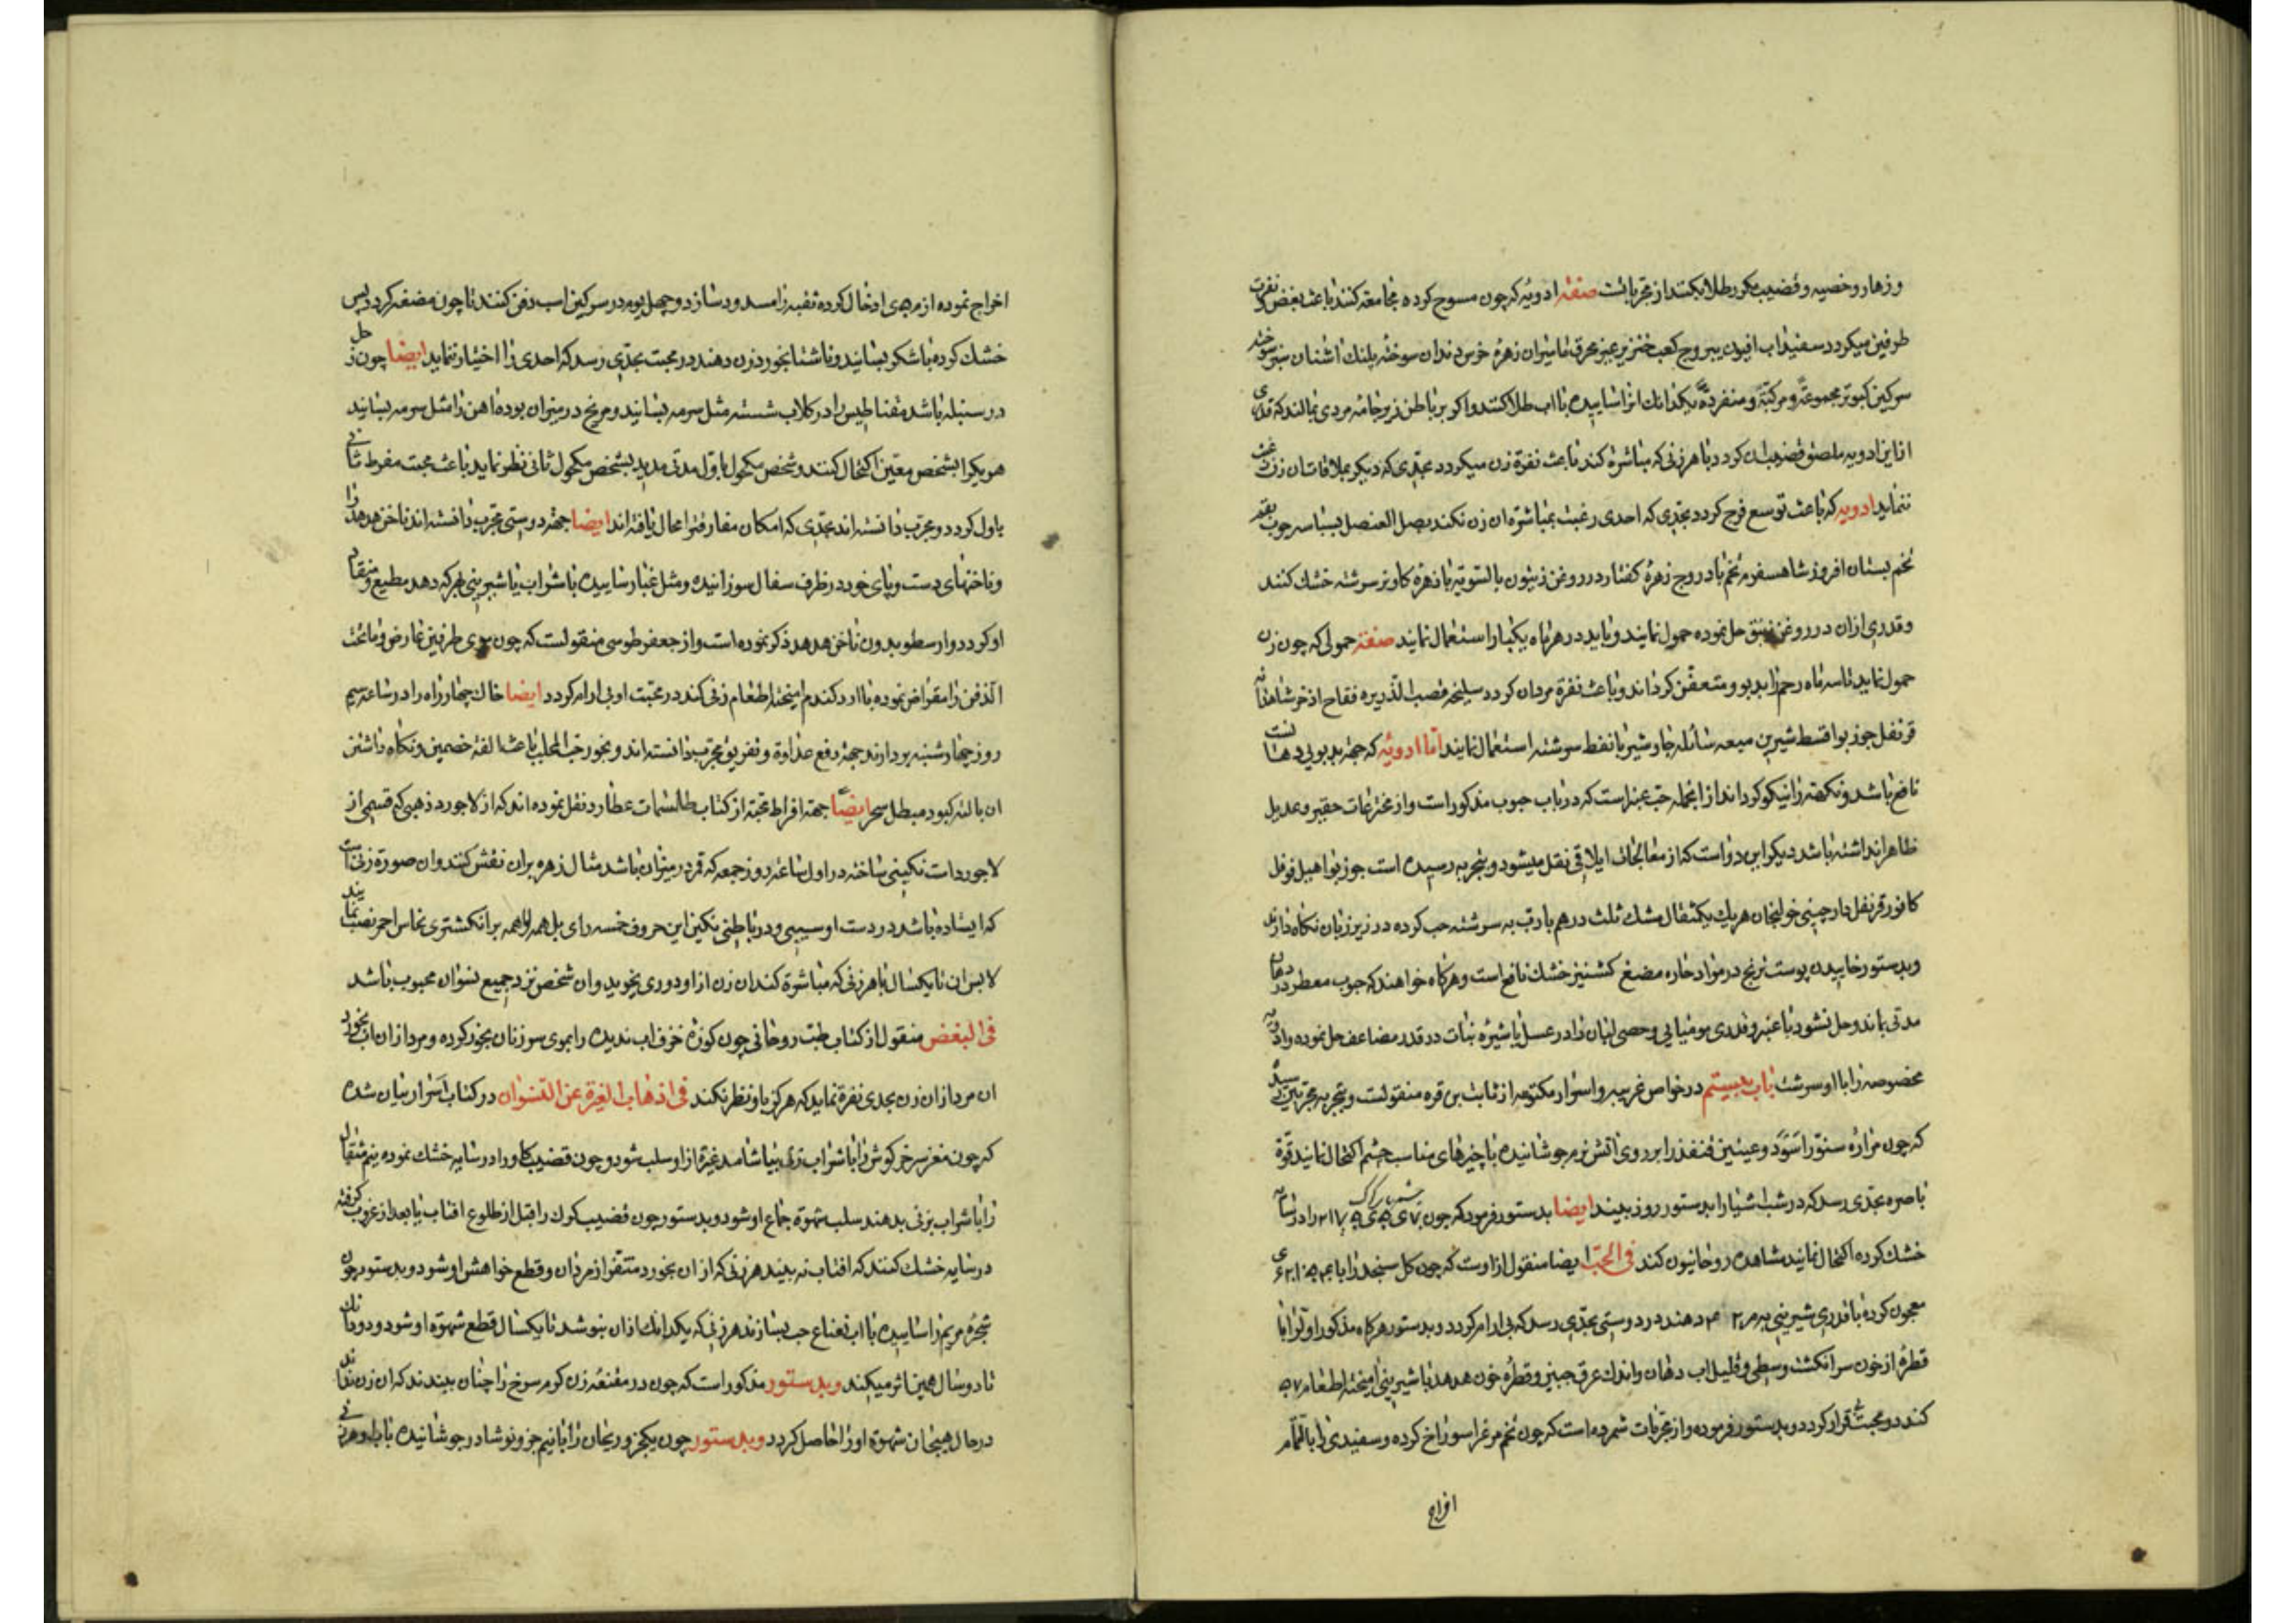 و زهار و خصیه و قضیب مکرر طلا بکنند از مجرباتست صفة ادویه که چون مسوح کرده مجامعه کنند باعث بغض و نفرت
طرفین میکردد سفیداب افیون یبروج کعب خنزیر عنبر محرق مامیران زهرهٔ خرس دندان سوخته پلنک اشنان سبز سوخته
سرکین کبوتر مجموعةً و مرکبةً و منفردةً یکدانك انرا ساییده با اب طلا کنند و اکر بر باطن زیرجامهٔ مردی بمالند که قدری
از این ادویه ملصق قضیب ان کردد با هر زنی که مباشرة کند باعث نفرة زن میکردد بحدی که دیکر بملاقات ان زن رغبت
ننماید ادویه که باعث توسع فرج کردد بحدی که احدی رغبت بمباشرة ان زن نکند بصل العنصل بسباسه جوب بقم
تخم بستان افروز شاهسفرم تخم بادروج زهرهٔ کفتار در روغن زیتون بالسویه با زهرهٔ کاو نر سرشته خشك کنند
و قدری ازان در روغن زنبق حل نموده حمول نمایند و باید در هر ماه یکبار استعمال نمایند صفة حمولی که چون زن
حمول نماید تا سه ماه رحم را بدبو و متعفن کرداند و باعث نفرة مردان کردد سلیخه قصب الذریره فقاح اذخر
قرنفل جوز بوا قسط شیرین میعه سائله جاوشیر با نفط سرشته استعمال نمایند اما ادویه که جهة بدبویی دهانست
نافع باشد و نکهة را نیکو کرداند ازانجمله حب عنبر است که در باب حبوب مذکور است و از مخترعات حقیر و عدیل
ظاهرا نداشته باشد دیکر این دواست که از معالجات ایلاقی نقل میشود و بتجربه رسیده است جوز بوا هیل فوفل
کافور قرنفل دارچینی خولنجان هریك یکمثقال مشك ثلث درهم با رب به سرشته حب کرده در زیر زبان نکاه دارند
و بدستور خاییدن پوست ترنج در مواد حاره مضغ کشنیز خشك نافع است و هرکاه خواهند که حبوب معطر در دهان
مدتی بماند و حل نشود با عنبر و قدری مومیایی و حصی لبان را در عسل یا شیرهٔ نبات در قدر مضاعف حل نموده و ادویه
مخصوصه را با او سرشت باب بیستم در خواص غریبه و اسرار مکتومه از ثابت بن قره منقولست و بتجربه مجربین رسیده
که چون مرارهٔ سنور اسود و عینین قنفذ را بر روی اتش نرم جوشانیده با چیزهای مناسب چشم اکتحال نمایند قوة
باصره بحدی رسد که در شب اشیا را بدستور روز بیند ایضا بدستور فرموده که چون
خشك کرده اکتحال نمایند مشاهده روحانیون کند فی الحب ایضا منقول از اوست که چون کل سنجد را با
معجون کرده با قدری شیرینی به دهند در دوستی بحدی رسد که بی ارام کردد و بدستور هرکاه مذکور او را با
قطرهٔ از خون سر انکشت وسطی و قلیل اب دهان و اندك عرق جبین و قطرهٔ خون هدهد با شیرینی امیخته اطعام
کنند در محبت بی قرار کردد و بدستور فرموده و از مجربات شمرده است که چون تخم مرغ را سوراخ کرده و سفیدی را بالتمام
اخراج
اخراج نموده از ادخال کرده ثقبه را مسدود سازد و چهل یوم در سرکین اسب دفن کنند تا چون مضغه کردد پس
خشك کرده با شکر بسایند و ناشتا بخورد زن دهند در محبت بحدی رسد که احدی را اختیار ننماید ایضا چون زحل
در سنبله باشد مقناطیس را در کلاب شسته مثل سرمه بسایند و مریخ در میزان بوده اهن را مثل سرمه بسایند
هریکرا بشخص معین اکتحال کنند و شخص مکحول باول مدتی مدید بشخص مکحول ثانی نظر نماید باعث محبت مفرط ثانی
باول کردد و مجرب دانسته اند بحدی که امکان مفارقت را محال یافته اند ایضا جهة دوستی مجرب دانسته اند ناخن هدهد را
و ناخنهای دست و پای خود در ظرف سفال سوزانیده و مثل غبار ساییده با شراب یا شیرینی بهرکه دهد مطیع و منقاد
او کردد و ارسطو بدون ناخن هدهد ذکر نموده است و از جعفر طوسی منقولست که چون موی طرفین عارض و ماتحت
الذقن را مقراض نموده با ارد کندم امیخته اطعام زنی کند در محبت او بی ارام کردد ایضا خاك چهار راه را در ساعه سیم
روز چهارشنبه بردارند جهة دفع عداوة و تفریق مجرب دانسته اند و بخور حب المحلب باعث الفة خصمین و نکاه داشتن
ان با لته کبود مبطل سحر ایضًا جهة افراط محبة از کتاب طلسمات عطارد نقل نموده اند که از لاجورد ذهبی که قسمی از
لاجورد است نکینی ساخته در اول ساعة روز جمعه که قمر در میزان باشد مثال زهره بران نقش کنند و ان صورة زنی است
که ایستاده باشد در دست او سیبی و در باطنی نکین این حروف خمسه را بر انکشتری نحاس احمر نصب نمایند
لابس ان تا یکسال با هر زنی که مباشرة کند ان زن از او دوری نجوید و ان شخص نزد جمیع نسوان محبوب باشد
فی البغض منقول از کتاب طب روحانی چون کوزهٔ خزف اب ندیده را بموی سر زنان بخور کرده و مرد ازان اب بخورد
ان مرد ازان زن بحدی نفرة نماید که هرکز باو نظر نکند فی اذهاب الغیرة عن النسوان در کتاب اسرار بیان شده
که چون مغز سر خرکوش را با شراب زنی بیاشامد غیرة از او سلب شود و چون قضیب کاو را در سایه خشك نموده نیم مثقال
را با شراب بزنی بدهند سلب شهوة جماع او شود و بدستور چون قضیب کرك را قبل از طلوع افتاب یا بعد از غروب کرفته
در سایه خشك کنند که افتاب نه بیند هر زنی که از ان بخورد متنفر از مردان و قطع خواهش او شود و بدستور چون
شجرهٔ مریم را ساییده با اب نعناع حب بسازند هر زنی که یکدانك ازان بنوشد تا یکسال قطع شهوة او شود و دو دانك
تا دو سال همین اثر میکند و بدستور مذکور است که چون در مقنعهٔ زن کرم سرخ را چنان ببندند که ان زن نداند
در حال هیجان شهوة او را حاصل کردد و بدستور چون یکجزو ریحان را با نیم جزو نوشادر جوشانیده